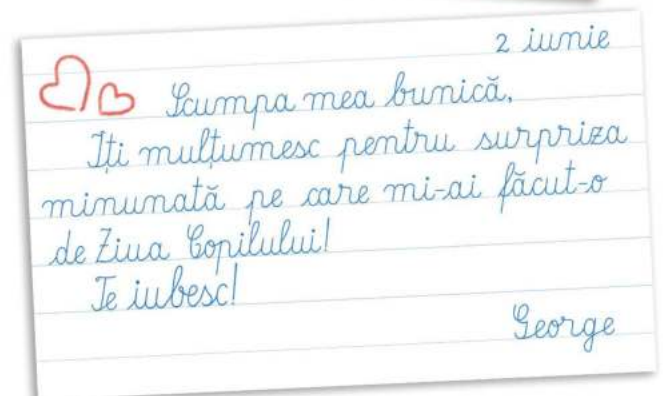 2 iunie
Scumpa mea bunică,
Îți mulțumesc pentru surpriza
minunată pe care mi-ai făcut-o
de Ziua Copilului!
Te iubesc!
George